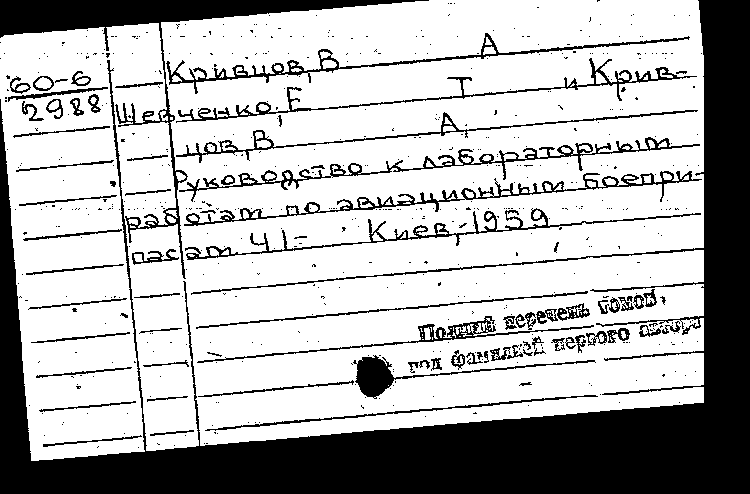 60-6
2988
Кривцов, В А
Шевченко, Е Т и Крив-
цов, В А.
Руководство к лабораторным
работам по авиационным боепри-
пасам Ч 1- Киев,-1959.
Полный перечень томов,
под фамилией первого автора